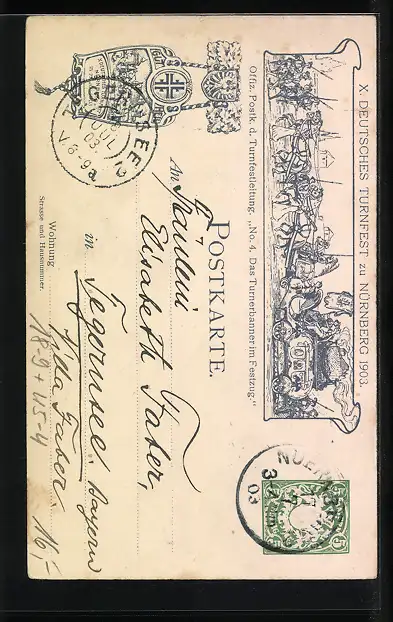 X. DEUTSCHES TURNFEST ZU NÜRNBERG 1903.
Offiz. Postk. d. Turnfestleitung. „No. 4. Das Turnerbanner im Festzug."
POSTKARTE.
An Fräulein
Elisabeth Faber,
in Tegernsee. Bayern
Villa Faber.
Wohnung
Strasse und Hausnummer.
16,-
TEGERNSEE
JUL
03
V. 8-9a
NUERNBERG
03
5